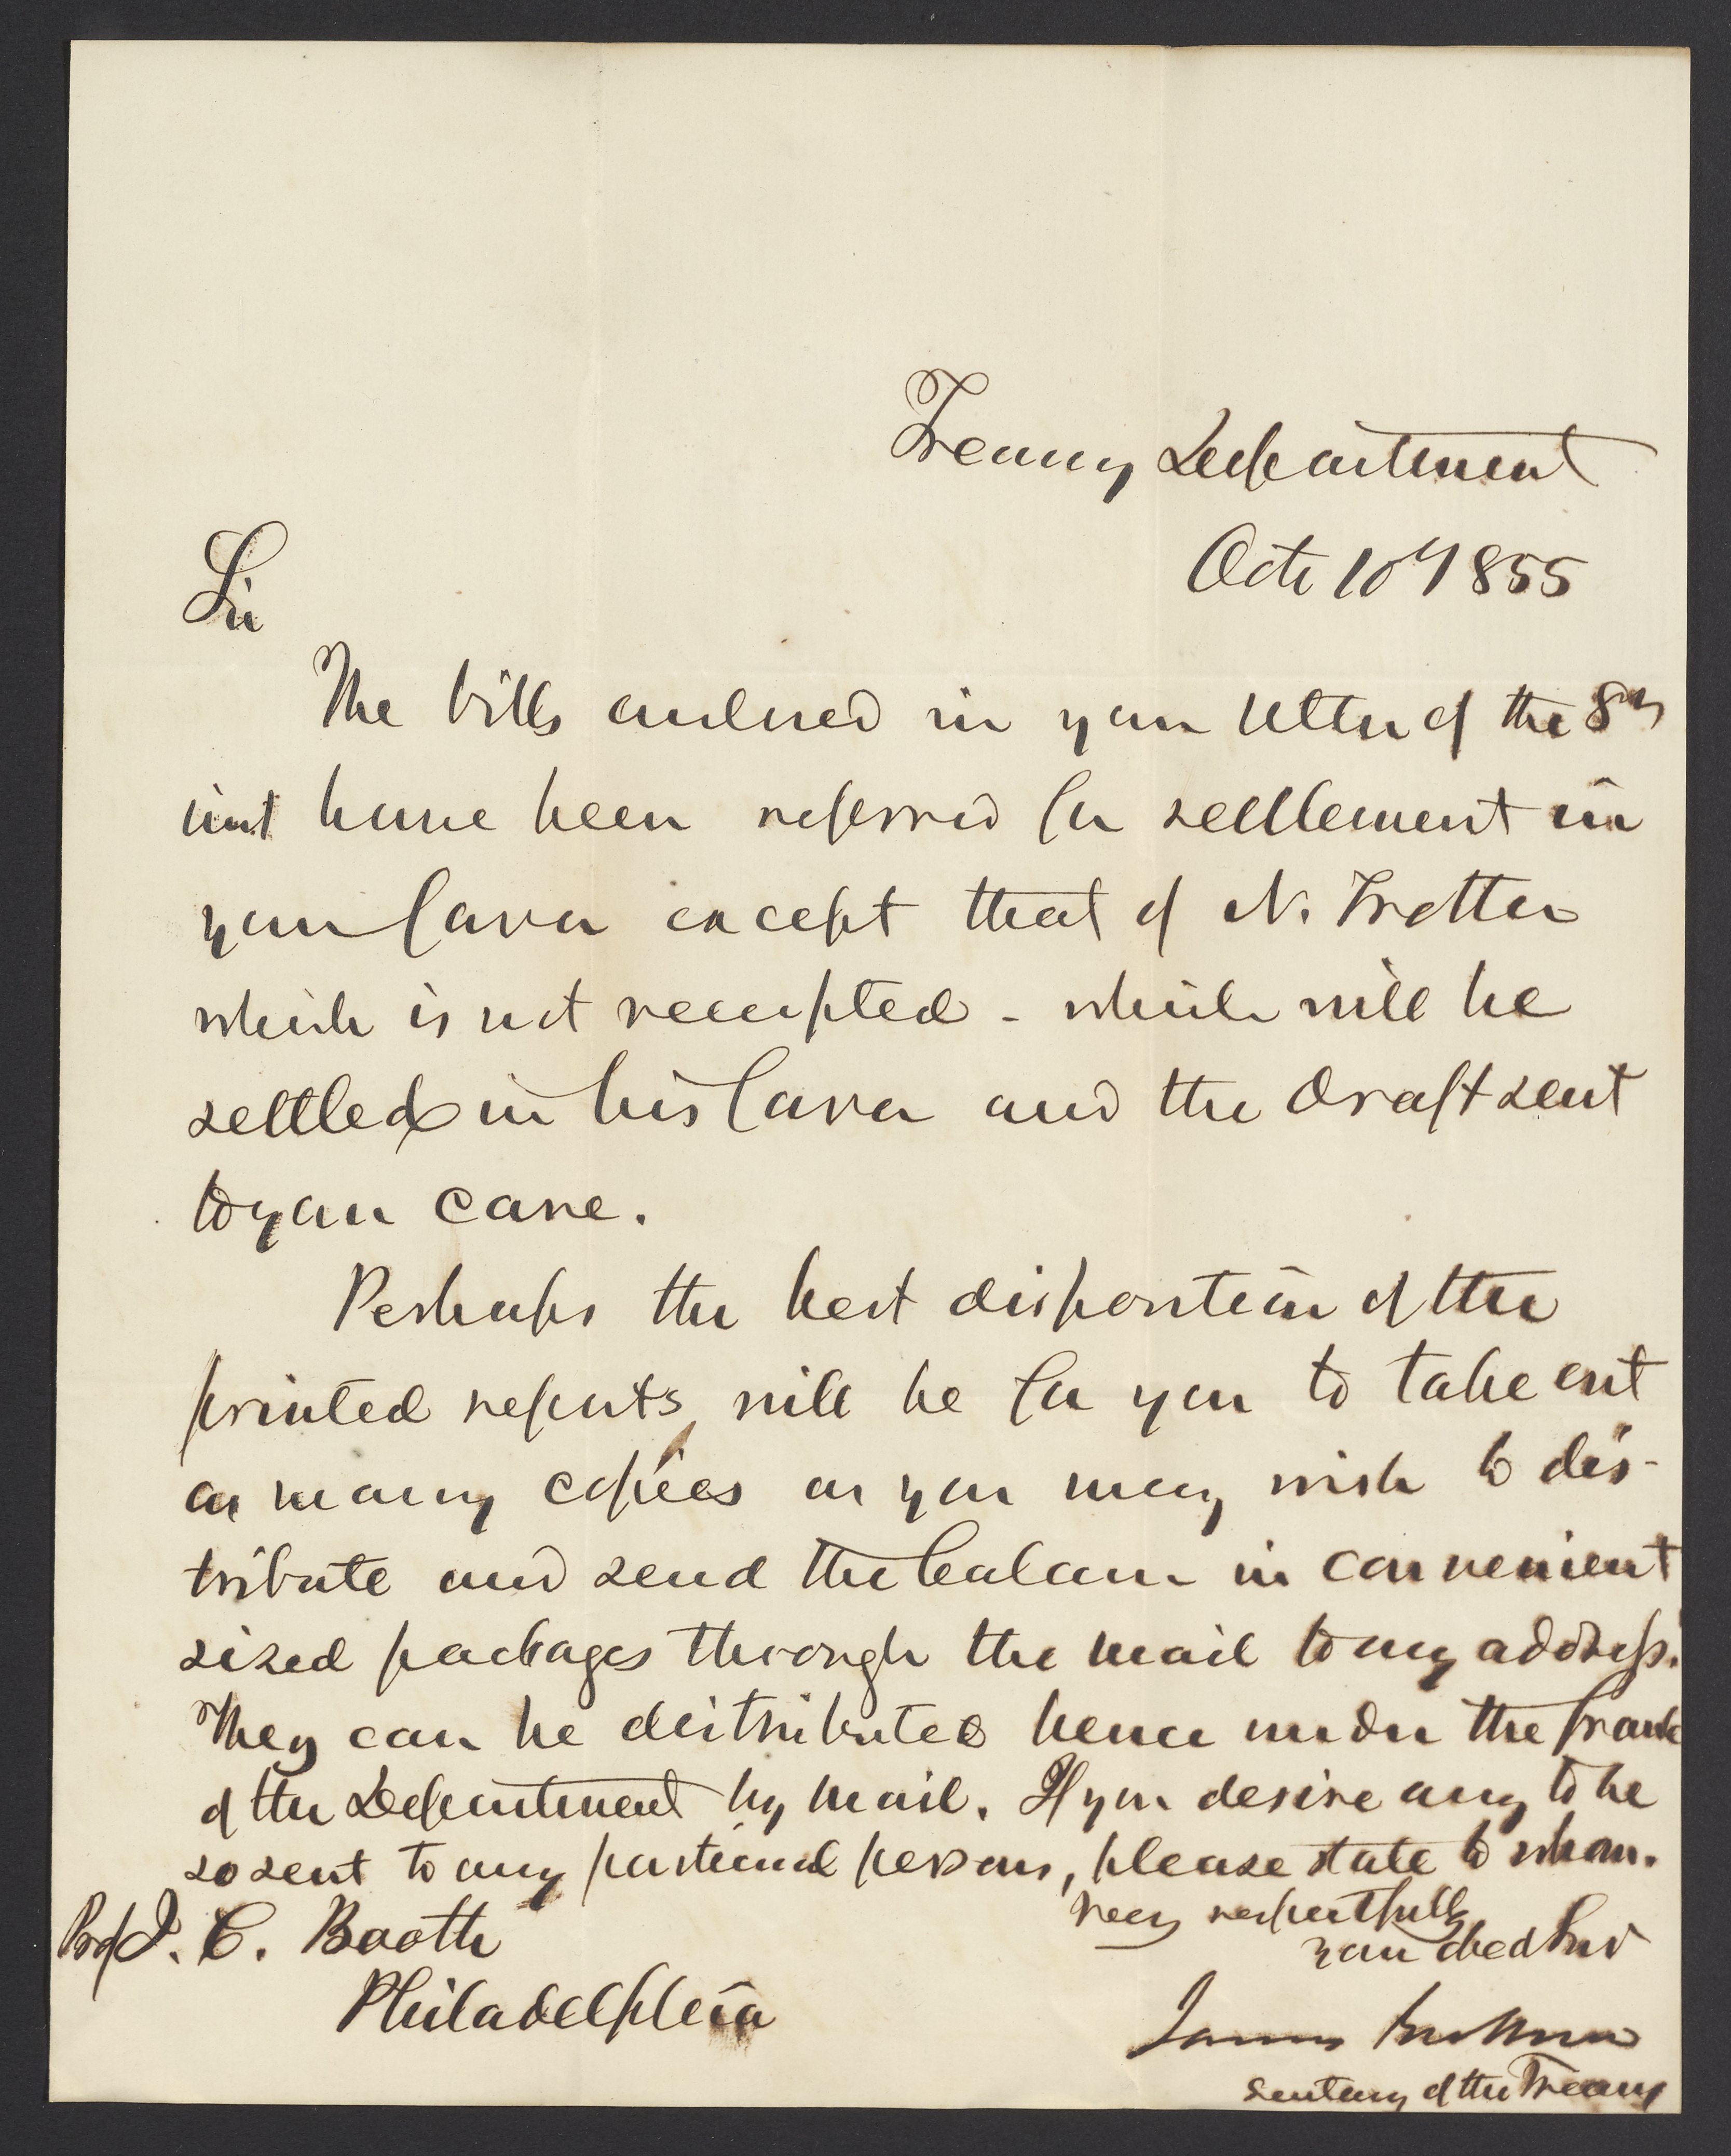 Treasury Department
Octr 10th 1855
Sir
The bills enclosed in your letter of the 8th
inst have been referred for settlement in
your favor except that of N. Trotter
which is not receipted - which will be
settled in his favor and the draft sent
to your care.
Perhaps the best disposition of the
printed reports will be for you to take out
as many copies as you may wish to dis-
tribute and send the balance in convenient
sized packages through the mail to my address.
They can be distributed hence under the frank
of the Department by mail. If you desire any to be
so sent to any particular persons, please state to whom.
Very respectfully
your obed Servt
Prof J. C. Booth
Philadelphia
James Guthrie
Secretary of the Treasury